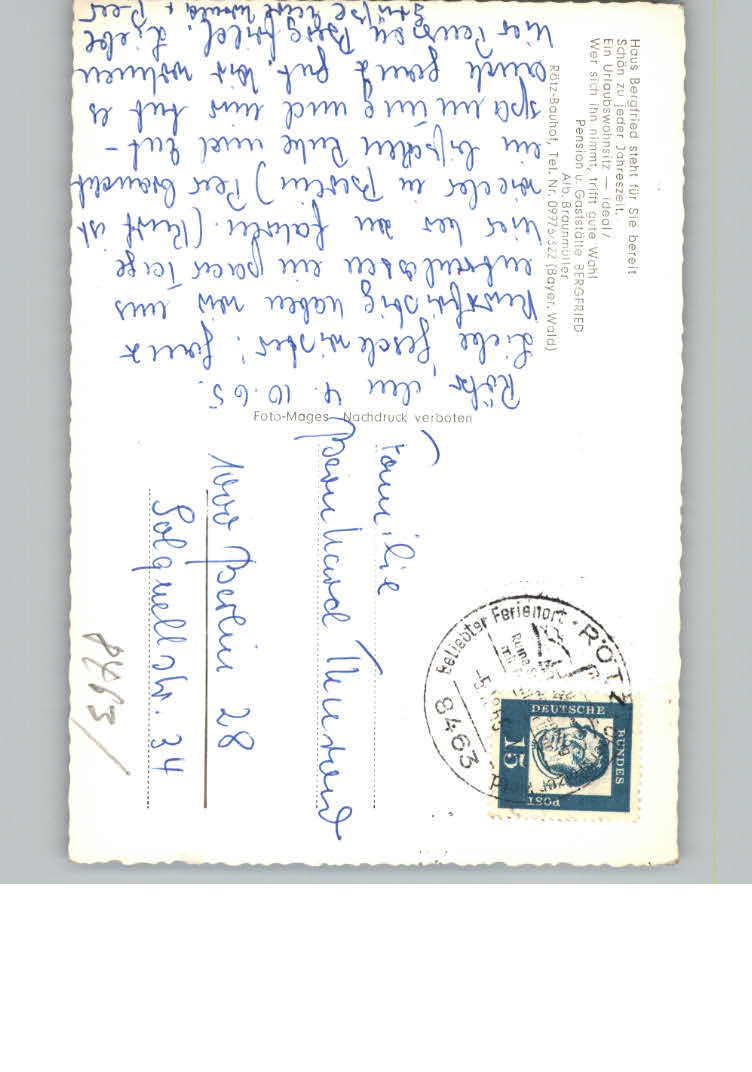 Haus Bergfried steht für Sie bereit
Schön zu jeder Jahreszeit.
Ein Urlaubswohnsitz — ideal /
Wer sich ihn nimmt, trifft gute Wahl
Pension u. Gaststätte BERGFRIED
Alb. Braunmüller
Rötz-Bauhof, Tel. Nr. 09976/322 (Bayer. Wald)
Rötz, den 4. 10. 65.
Liebe Geschwister! Ganz
kurzfristig haben wir uns
entschlossen ein paar Tage
hier her zu fahren. (Kurt ist
wieder in Berlin) Peer braucht
ein bißchen Ruhe und Ent-
spannung und uns tut es
auch ganz gut. Wir wohnen
hier Pension Bergfried. Liebe
Grüße + Peer
Foto-Mages Nachdruck verboten
Familie
Bernhard
1000 Berlin 28
Solquellstr. 34
8463/
Beliebter Ferienort · RÖTZ
8463
DEUTSCHE
BUNDES
POST
15